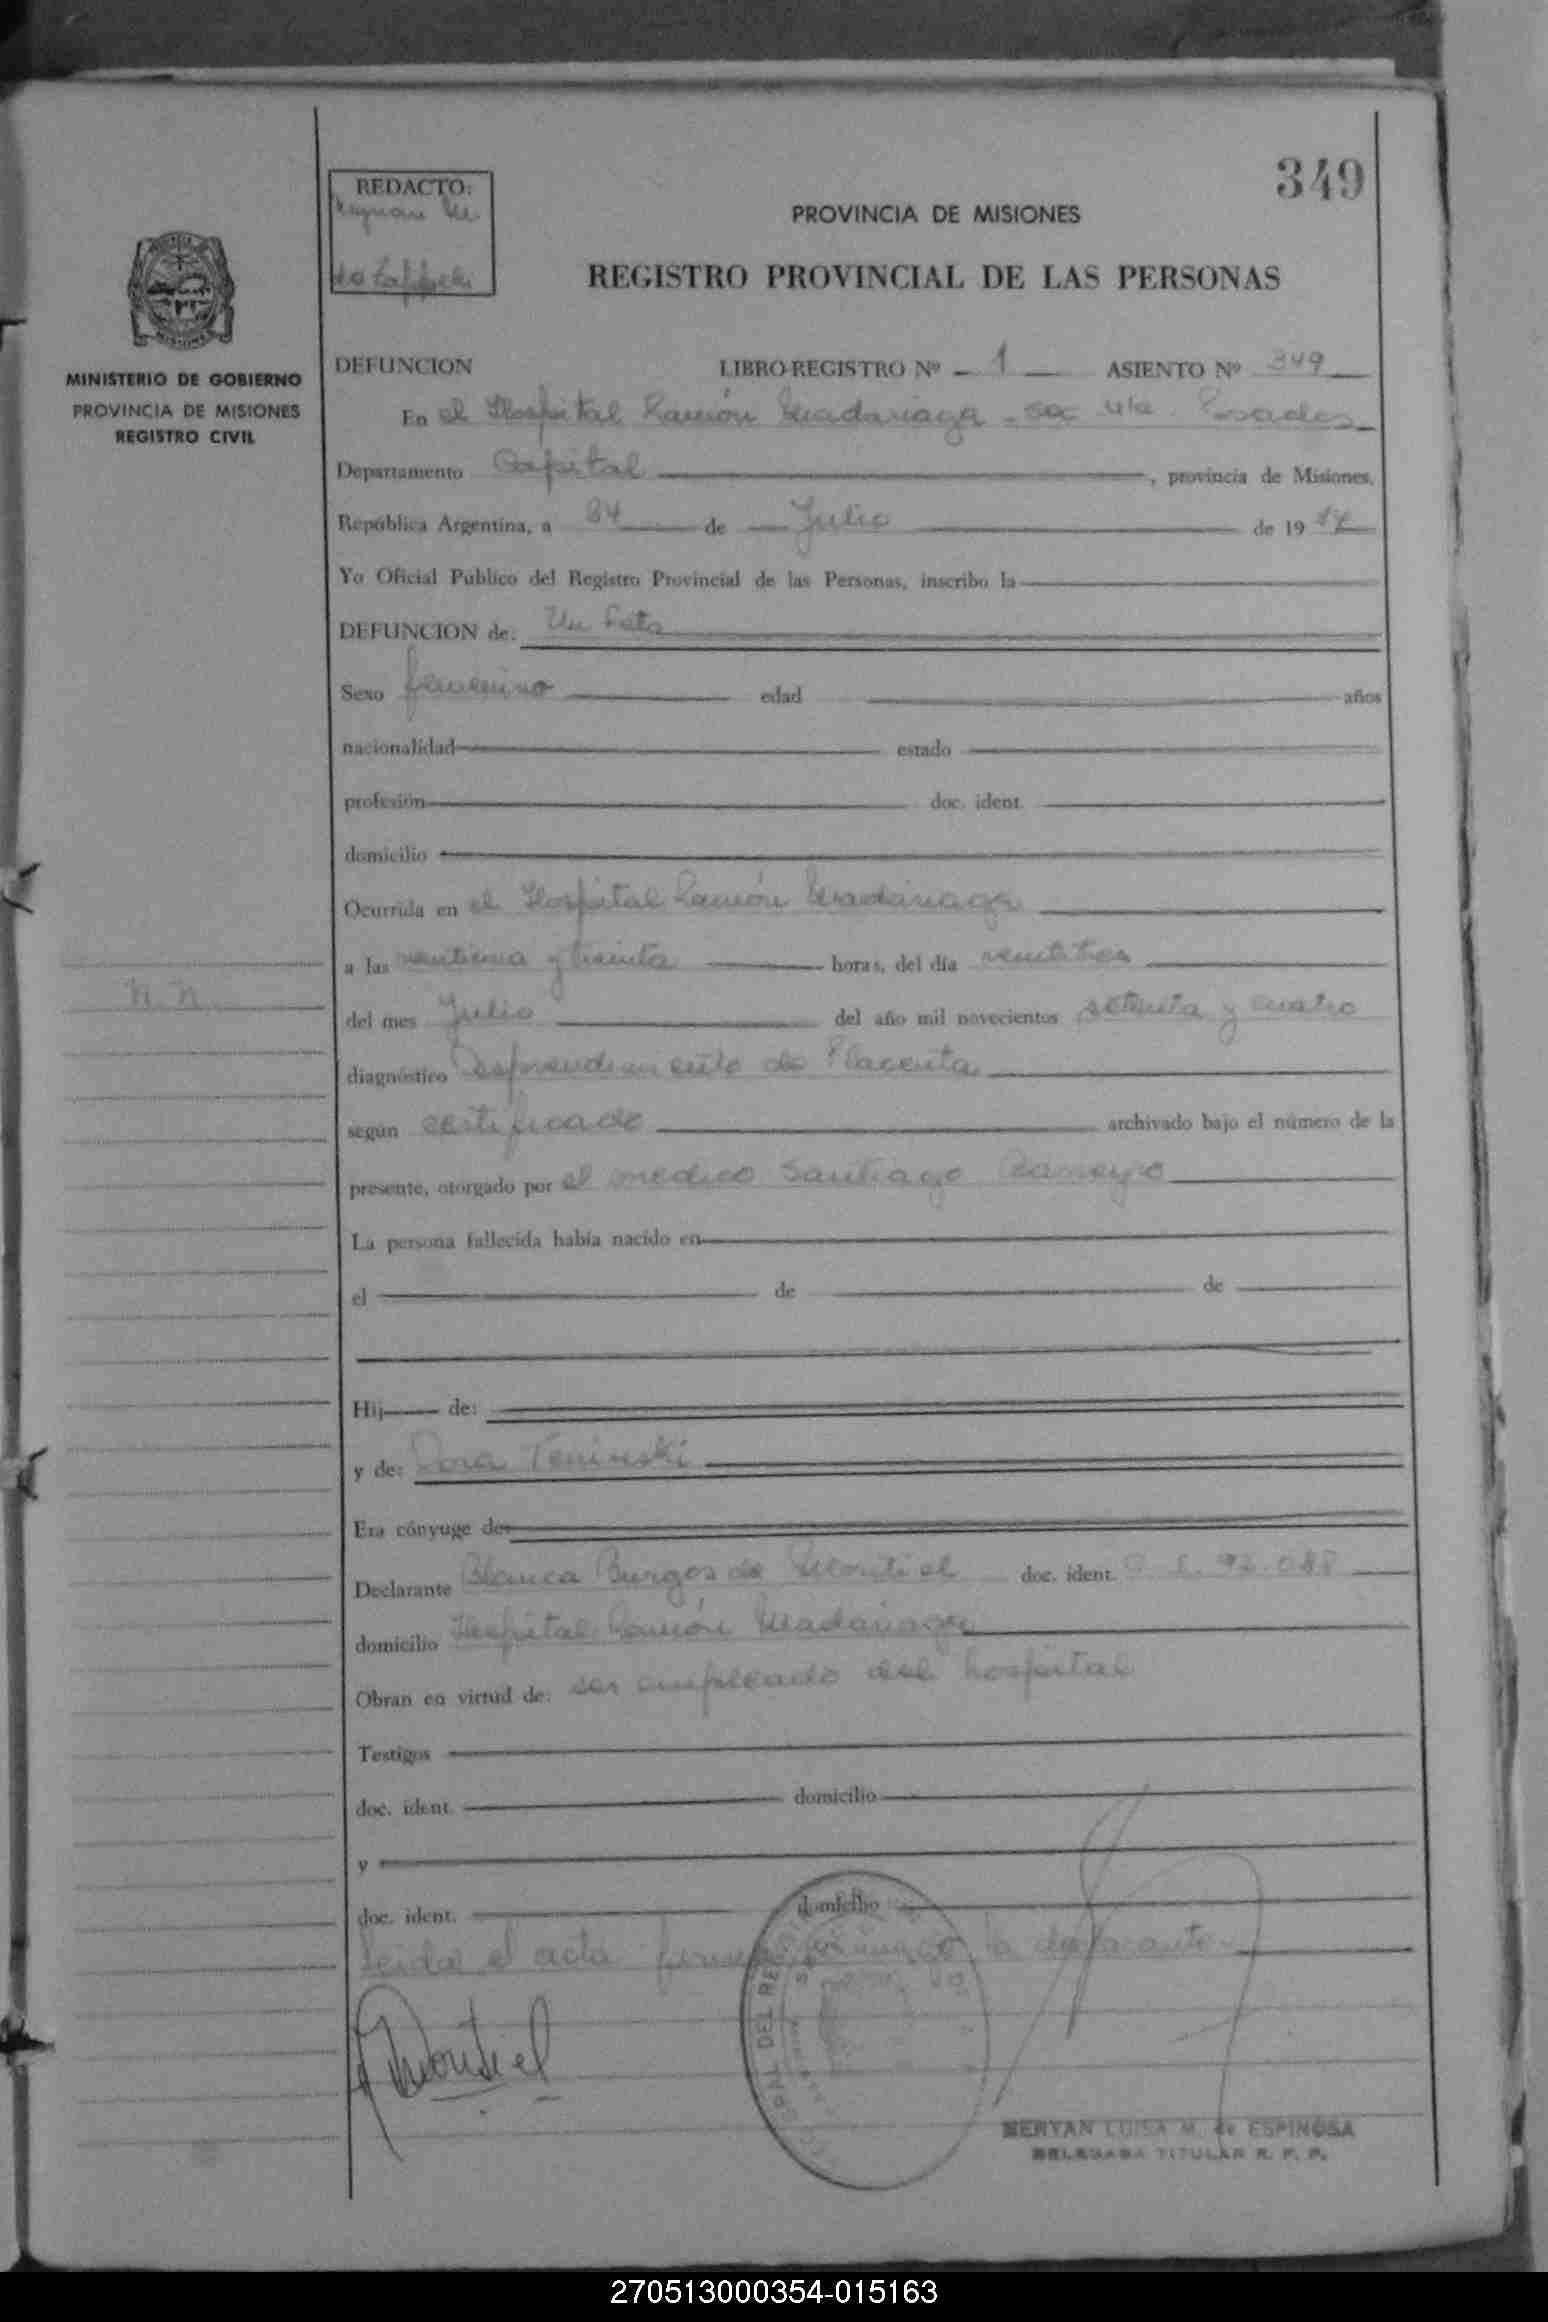 349
REDACTO:
PROVINCIA DE MISIONES
REGISTRO PROVINCIAL DE LAS PERSONAS
MINISTERIO DE GOBIERNO
PROVINCIA DE MISIONES
REGISTRO CIVIL
DEFUNCION LIBRO-REGISTRO Nº 1 ASIENTO Nº 349
En el Hospital Ramón Madariaga - sec 4ta Posadas
Departamento Capital, provincia de Misiones,
República Argentina, a 24 de Julio de 1974
Yo Oficial Público del Registro Provincial de las Personas, inscribo la
DEFUNCION de: Un Feto
Sexo femenino edad años
nacionalidad estado
profesión doc. ident.
domicilio
Ocurrida en el Hospital Ramón Madariaga
a las ventiuna y treinta horas, del día ventitres
N.N.
del mes Julio del año mil novecientos setenta y cuatro
diagnóstico Desprendimiento de Placenta
según certificado archivado bajo el número de la
presente, otorgado por el medico Santiago
La persona fallecida había nacido en
el de de
Hij de:
y de: Dora Teninski
Era cónyuge de:
Declarante Blanca Burgos de Montiel doc. ident.
domicilio Hospital Ramón Madariaga
Obran en virtud de: ser empleado del hospital
Testigos
doc. ident. domicilio
y
doc. ident. domicilio
Leida el acta firma conmigo la declarante
Montiel
MERYAN LUISA M. de ESPINOSA
DELEGADA TITULAR R. P. P.
270513000354-015163